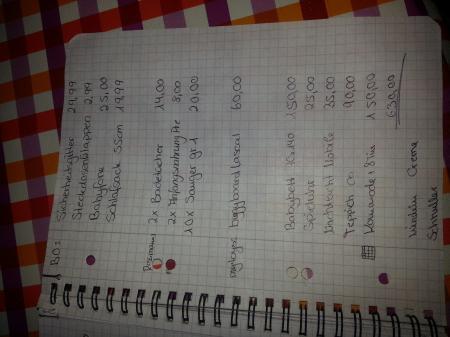 BO:
Sicherheitsgitter 29,99
Steckdosenklappen 2,99
Babyfone 25,00
Schlafsack 55cm 19,99
Rossmann 2x Badetücher 14,00
2x Anfangsnahrung Pre 8,00
10x Sauger gr.1 20,00
buggyboard Lascal 60,00
Babybett 70x140 150,00
Spieluhr 25,00
Nachtlicht Mobile 35,00
Teppich 90,00
Kommode 150,00
639,00
Windeln Creme
Schnuller